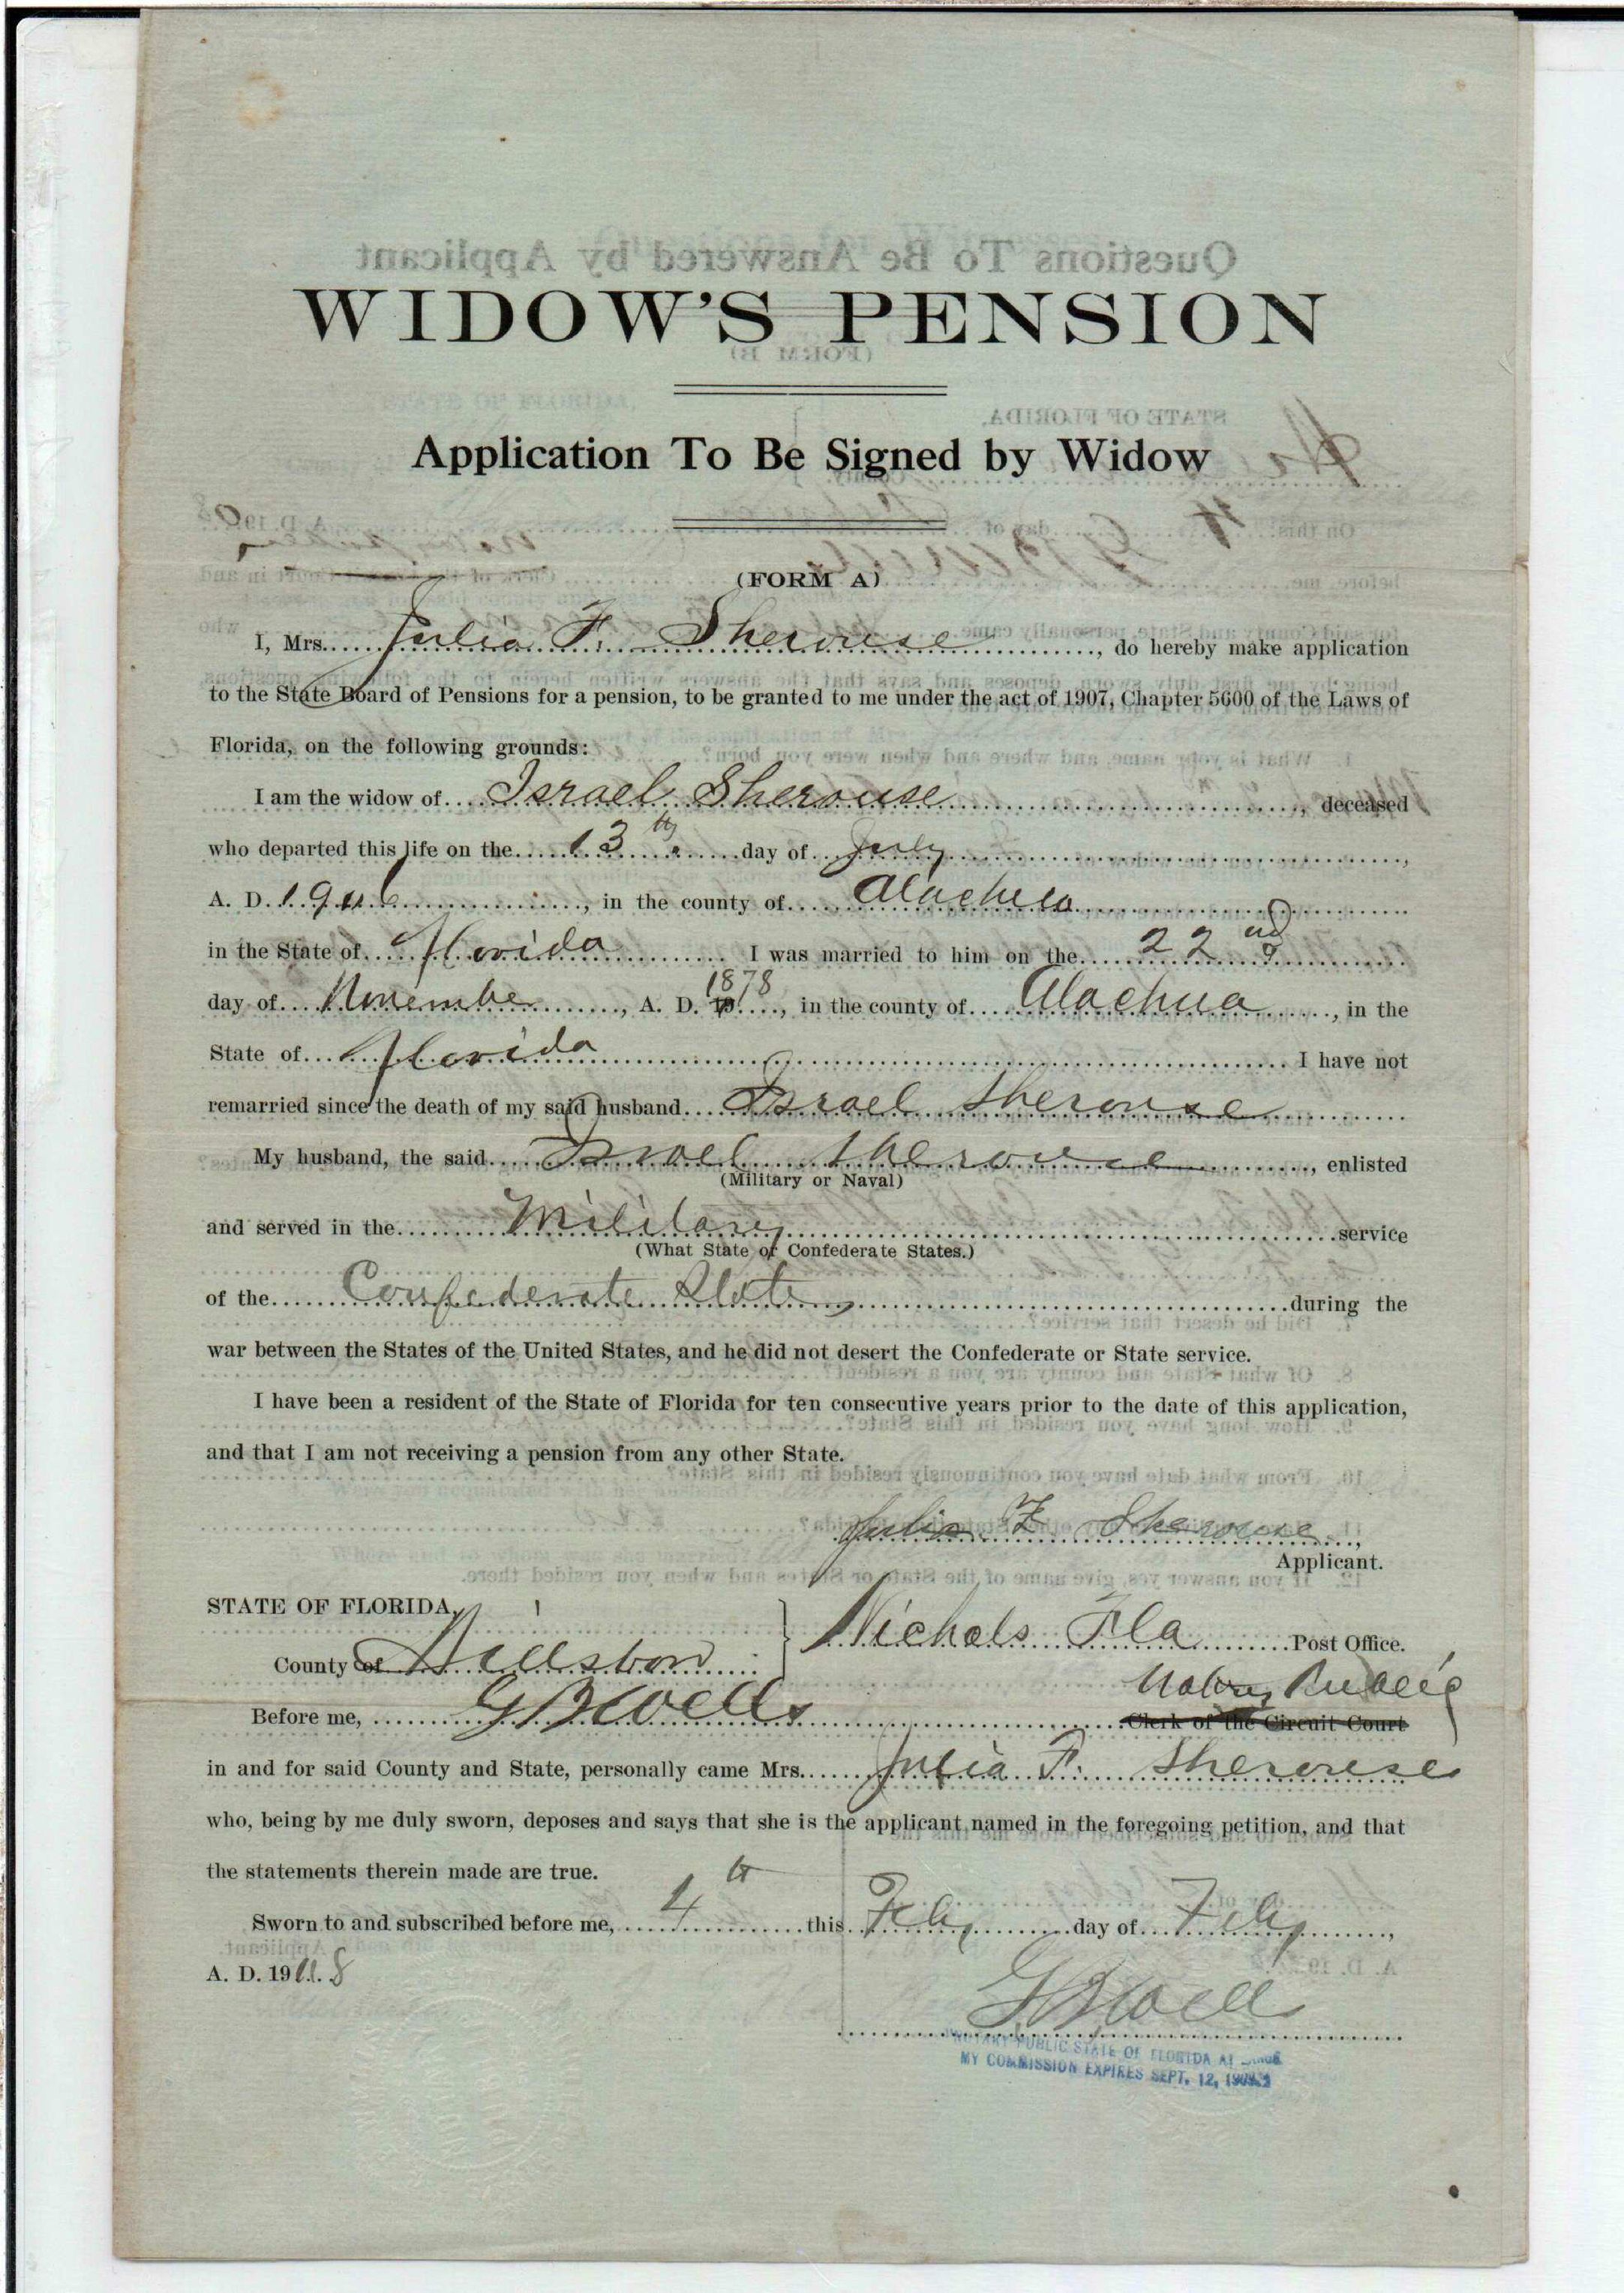 WIDOW'S PENSION
Application To Be Signed by Widow
(FORM A)
I, Mrs. Julia F. Sherouse, do hereby make application
to the State Board of Pensions for a pension, to be granted to me under the act of 1907, Chapter 5600 of the Laws of
Florida, on the following grounds:
I am the widow of Israel Sherouse, deceased
who departed this life on the 13th day of July,
A. D., in the county of Alachua
in the State of Florida I was married to him on the 22nd
day of November, A. D. 1878, in the county of Alachua, in the
State of Florida I have not
remarried since the death of my said husband Israel Sherouse
My husband, the said Israel Sherouse, enlisted
(Military or Naval)
and served in the Military service
(What State or Confederate States.)
of the Confederate States during the
war between the States of the United States, and he did not desert the Confederate or State service.
I have been a resident of the State of Florida for ten consecutive years prior to the date of this application,
and that I am not receiving a pension from any other State.
Julia F. Sherouse,
Applicant.
STATE OF FLORIDA,
County of Hillsboro
Nichols Fla Post Office.
Notary Public
Before me, G B Wells Clerk of the Circuit Court
in and for said County and State, personally came Mrs. Julia F. Sherouse
who, being by me duly sworn, deposes and says that she is the applicant named in the foregoing petition, and that
the statements therein made are true.
Sworn to and subscribed before me, 4th this Feby day of Feby,
A. D. 19
G B Wells
NOTARY PUBLIC STATE OF FLORIDA AT LARGE
MY COMMISSION EXPIRES SEPT. 12,